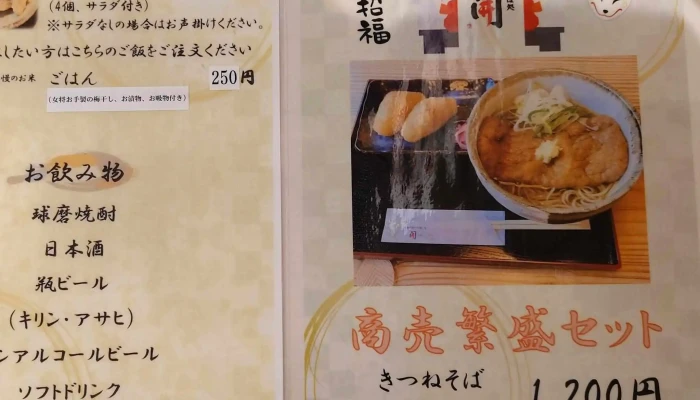 (4個、サラダ付き)
※サラダなしの場合はお声掛けください。
したい方はこちらのご飯をご注文ください
慢のお米 ごはん 250円
(女将お手製の梅干し、お漬物、お吸物付き)
お飲み物
球磨焼酎
日本酒
瓶ビール
(キリン・アサヒ)
ンアルコールビール
ソフトドリンク
招福
開
商売繁盛セット
きつねそば
1,200円